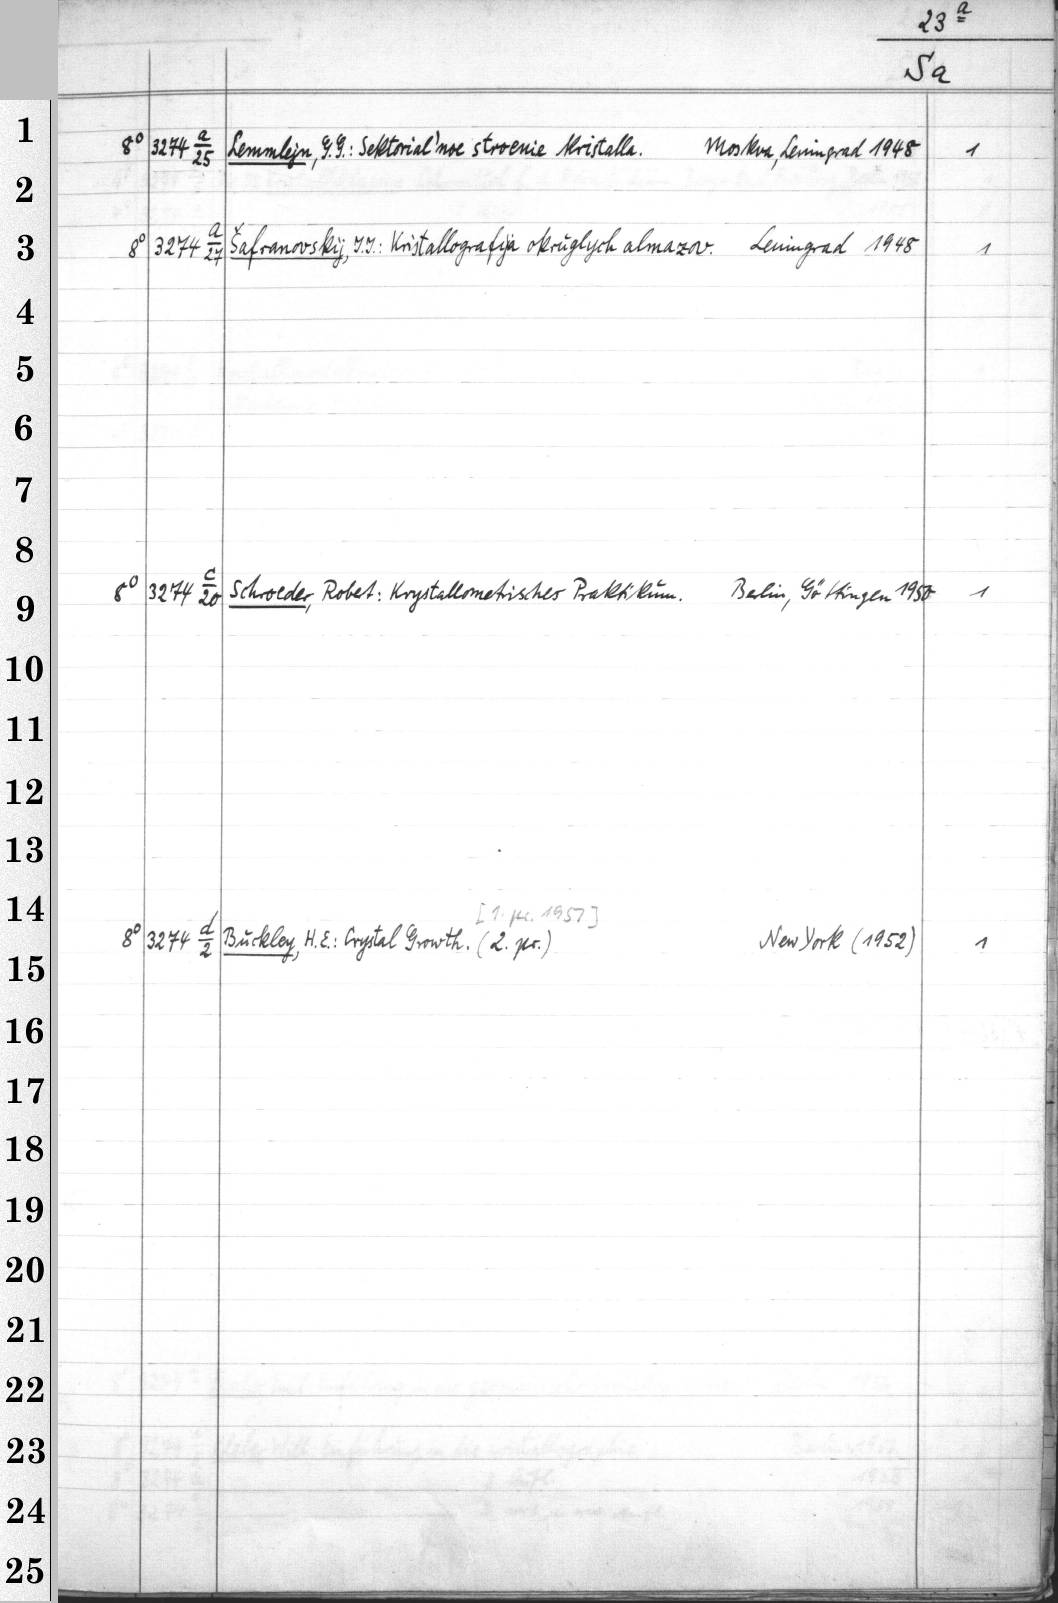 23 a
Sa
1
8° 3274 a/25 Lemmlejn, G.G.: Sektorial'noe stroenie kristalla. Moskva, Leningrad 1948 1
2
3 8° 3274 a/27 Šafranovskij, I.I.: Kristallografija okruglych almazov. Leningrad 1948 1
4
5
6
7
8
9 8° 3274 c/20 Schroeder, Robet: Krystallometrisches Praktikum. Berlin, Göttingen 1950 1
10
11
12
13
14 [1. pr. 1951]
8° 3274 d/2 Buckley, H.E.: Crystal Growth. (2. pr.) New York (1952) 1
15
16
17
18
19
20
21
22
23
24
25